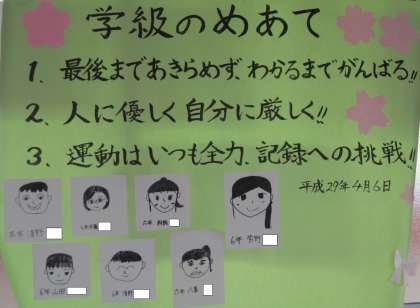 学級のめあて
1、最後まであきらめず、わかるまでがんばる!!
2、人に優しく自分に厳しく!!
3、運動はいつも全力、記録への挑戦!!
平成29年4月6日
6年
6年 山田
6年